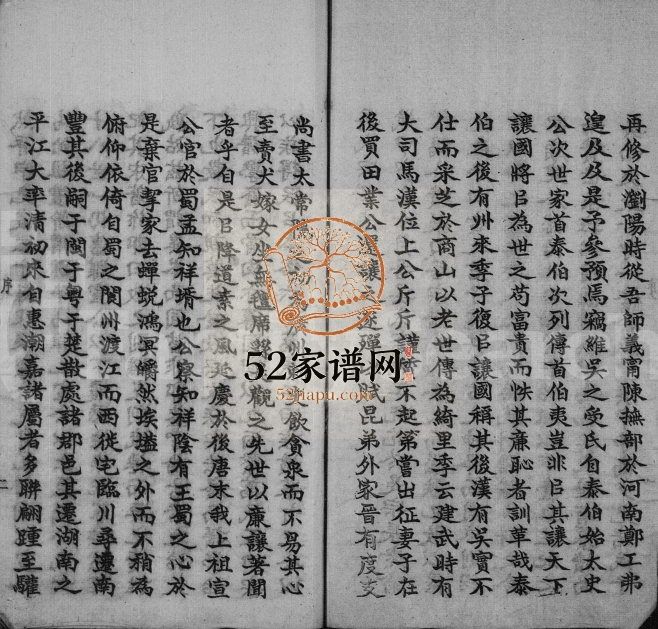 再修於瀏陽時從吾師義甯陳撫部於河南鄭工弗
遑及及是予參預焉竊維吳之受氏自泰伯始太史
公次世家首泰伯次列傳首伯夷豈非㠯其讓天下
讓國將㠯為世之苟富貴而怢其廉恥者訓革哉泰
伯之後有州來季子復㠯讓國稱其後漢有吳實不
仕而采芝於商山以老世傳為綺里季云建武時有
大司馬漢位上公斤斤謹 不起第嘗出征妻子在
後買田業公還讓 遂殫 賦昆弟外家晉有度支
尚書太常 州 飲貪泉而不易其心
至賣犬嫁女坐無氊席 觀之先世以廉讓著聞
者乎自是㠯降道素之風延慶於後唐末我上祖宣
公官於蜀孟知祥壻也公察知祥陰有王蜀之心於
是棄官挈家去蟬蛻鴻冥皭然埃壒之外而不稍為
俯仰依倚自蜀之閬州渡江而西徙宅臨川尋遷南
豐其後嗣于閩于粵于楚散處諸郡邑其遷湖南之
平江大率清初來自惠潮嘉諸屬者多聯翩踵至驩
序
序
二
52家谱网
52jiapu.com